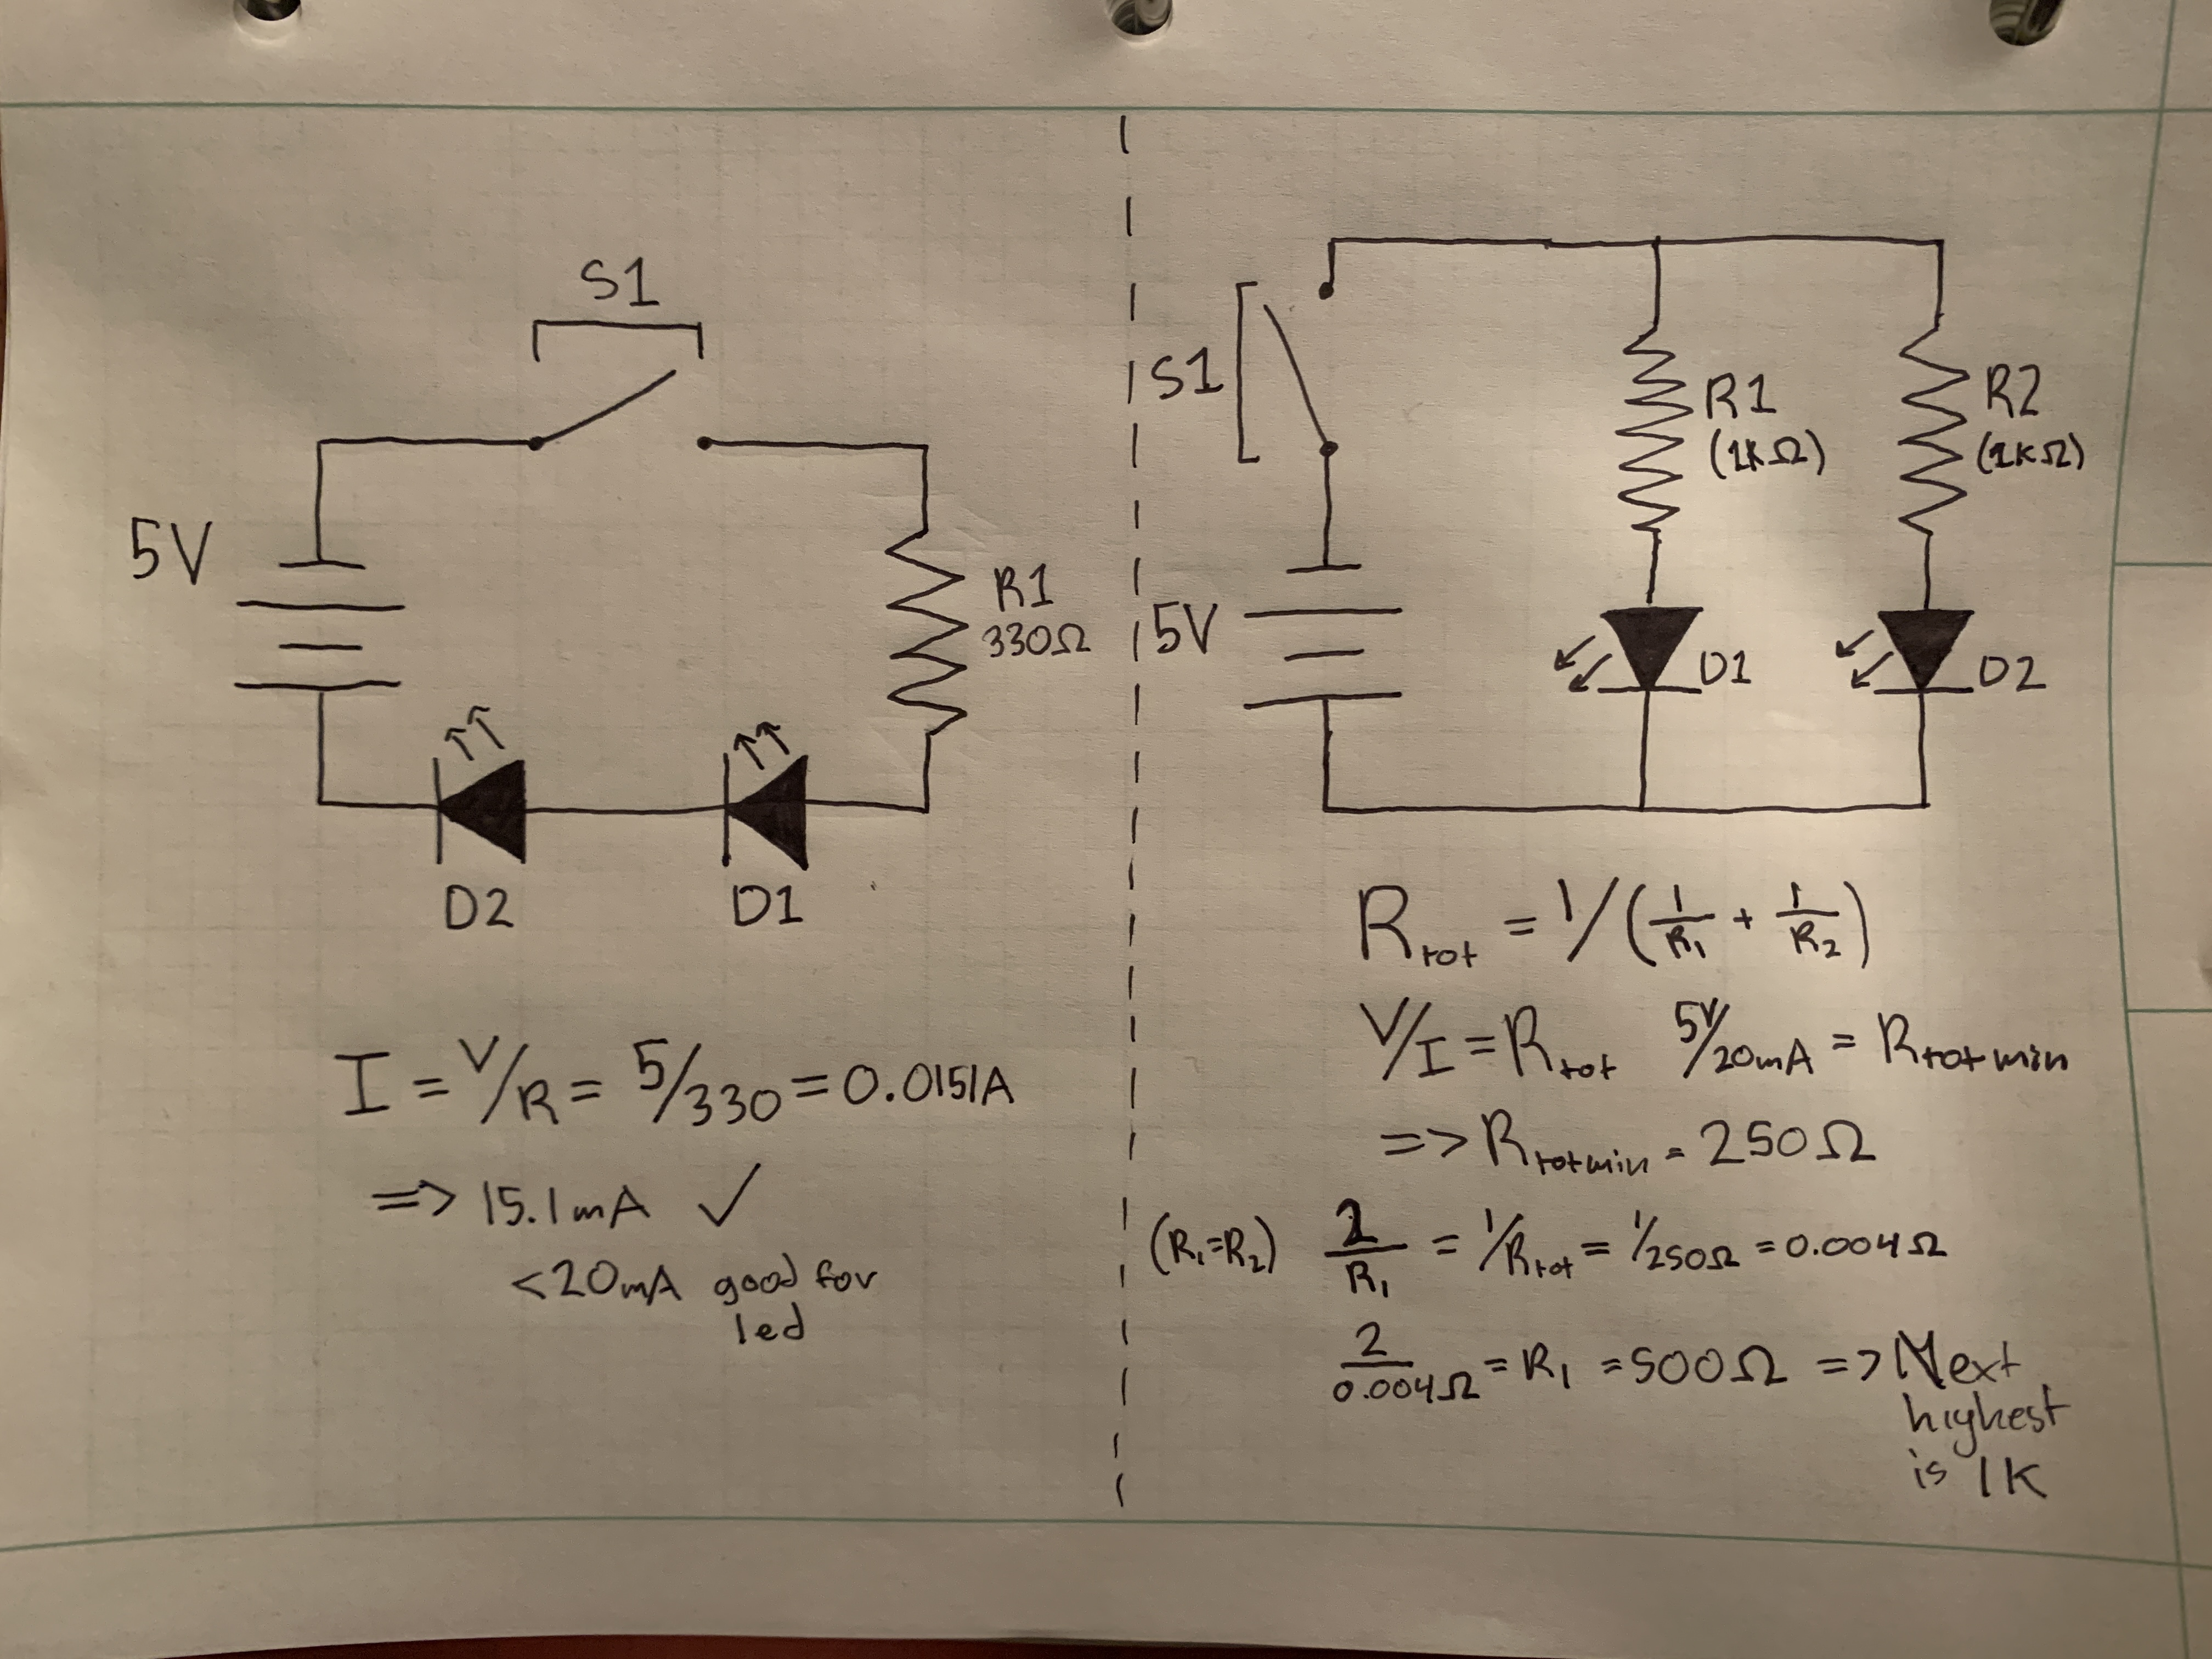 S1
5V
R1
330Ω
D2
D1
I = V/R = 5/330 = 0.0151A
=> 15.1mA ✓
<20mA good for
led
S1
5V
R1
(1KΩ)
R2
(1KΩ)
D1
D2
Rtot = 1/(1/R1 + 1/R2)
V/I = Rtot 5V/20mA = Rtotmin
=> Rtotmin = 250Ω
(R1=R2) 2/R1 = 1/Rtot = 1/250Ω = 0.004Ω
2/0.004Ω = R1 = 500Ω => Next
highest
is 1K